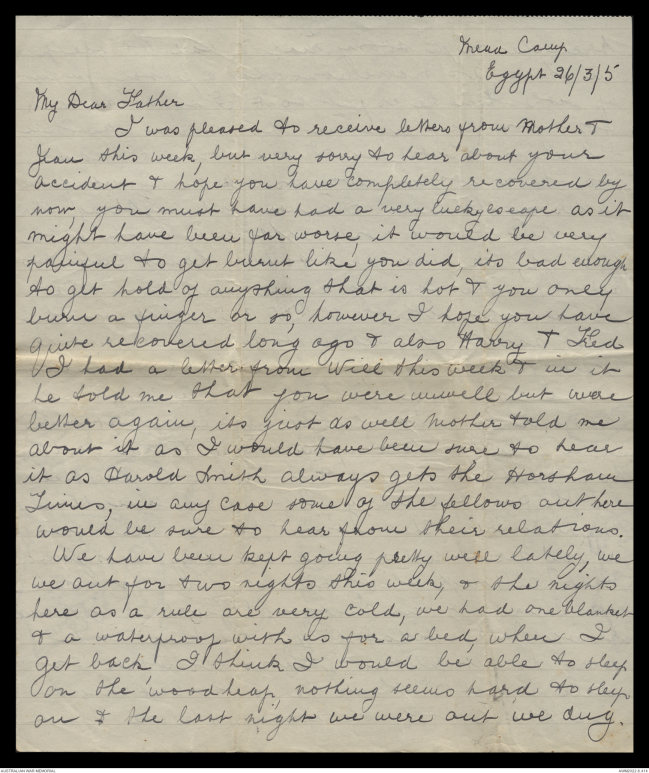 Mena Camp
Egypt 26/3/5
My Dear Father
I was pleased to receive letters from Mother &
Jean this week, but very sorry to hear about your
accident & hope you have completely recovered by
now, you must have had a very lucky escape as it
might have been far worse, it would be very
painful to get burnt like you did, its bad enough
to get hold of anything that is hot & you only
burn a finger or so, however I hope you have
quite recovered long ago & also Harry & Fred
I had a letter from Will this week & in it
he told me that you were unwell but were
better again, its just as well Mother told me
about it as I would have been sure to hear
it as Harold Smith always gets the Horsham
Times, in any case some of the fellows out here
would be sure to hear from their relations.
We have been kept going pretty well lately, we
we out for two nights this week, & the nights
here as a rule are very cold, we had one blanket
& a waterproof with us for a bed, when I
get back I think I would be able to sleep
on the woodheap, nothing seems hard to sleep
on & the last night we were out we dug.
AUSTRALIAN WAR MEMORIAL